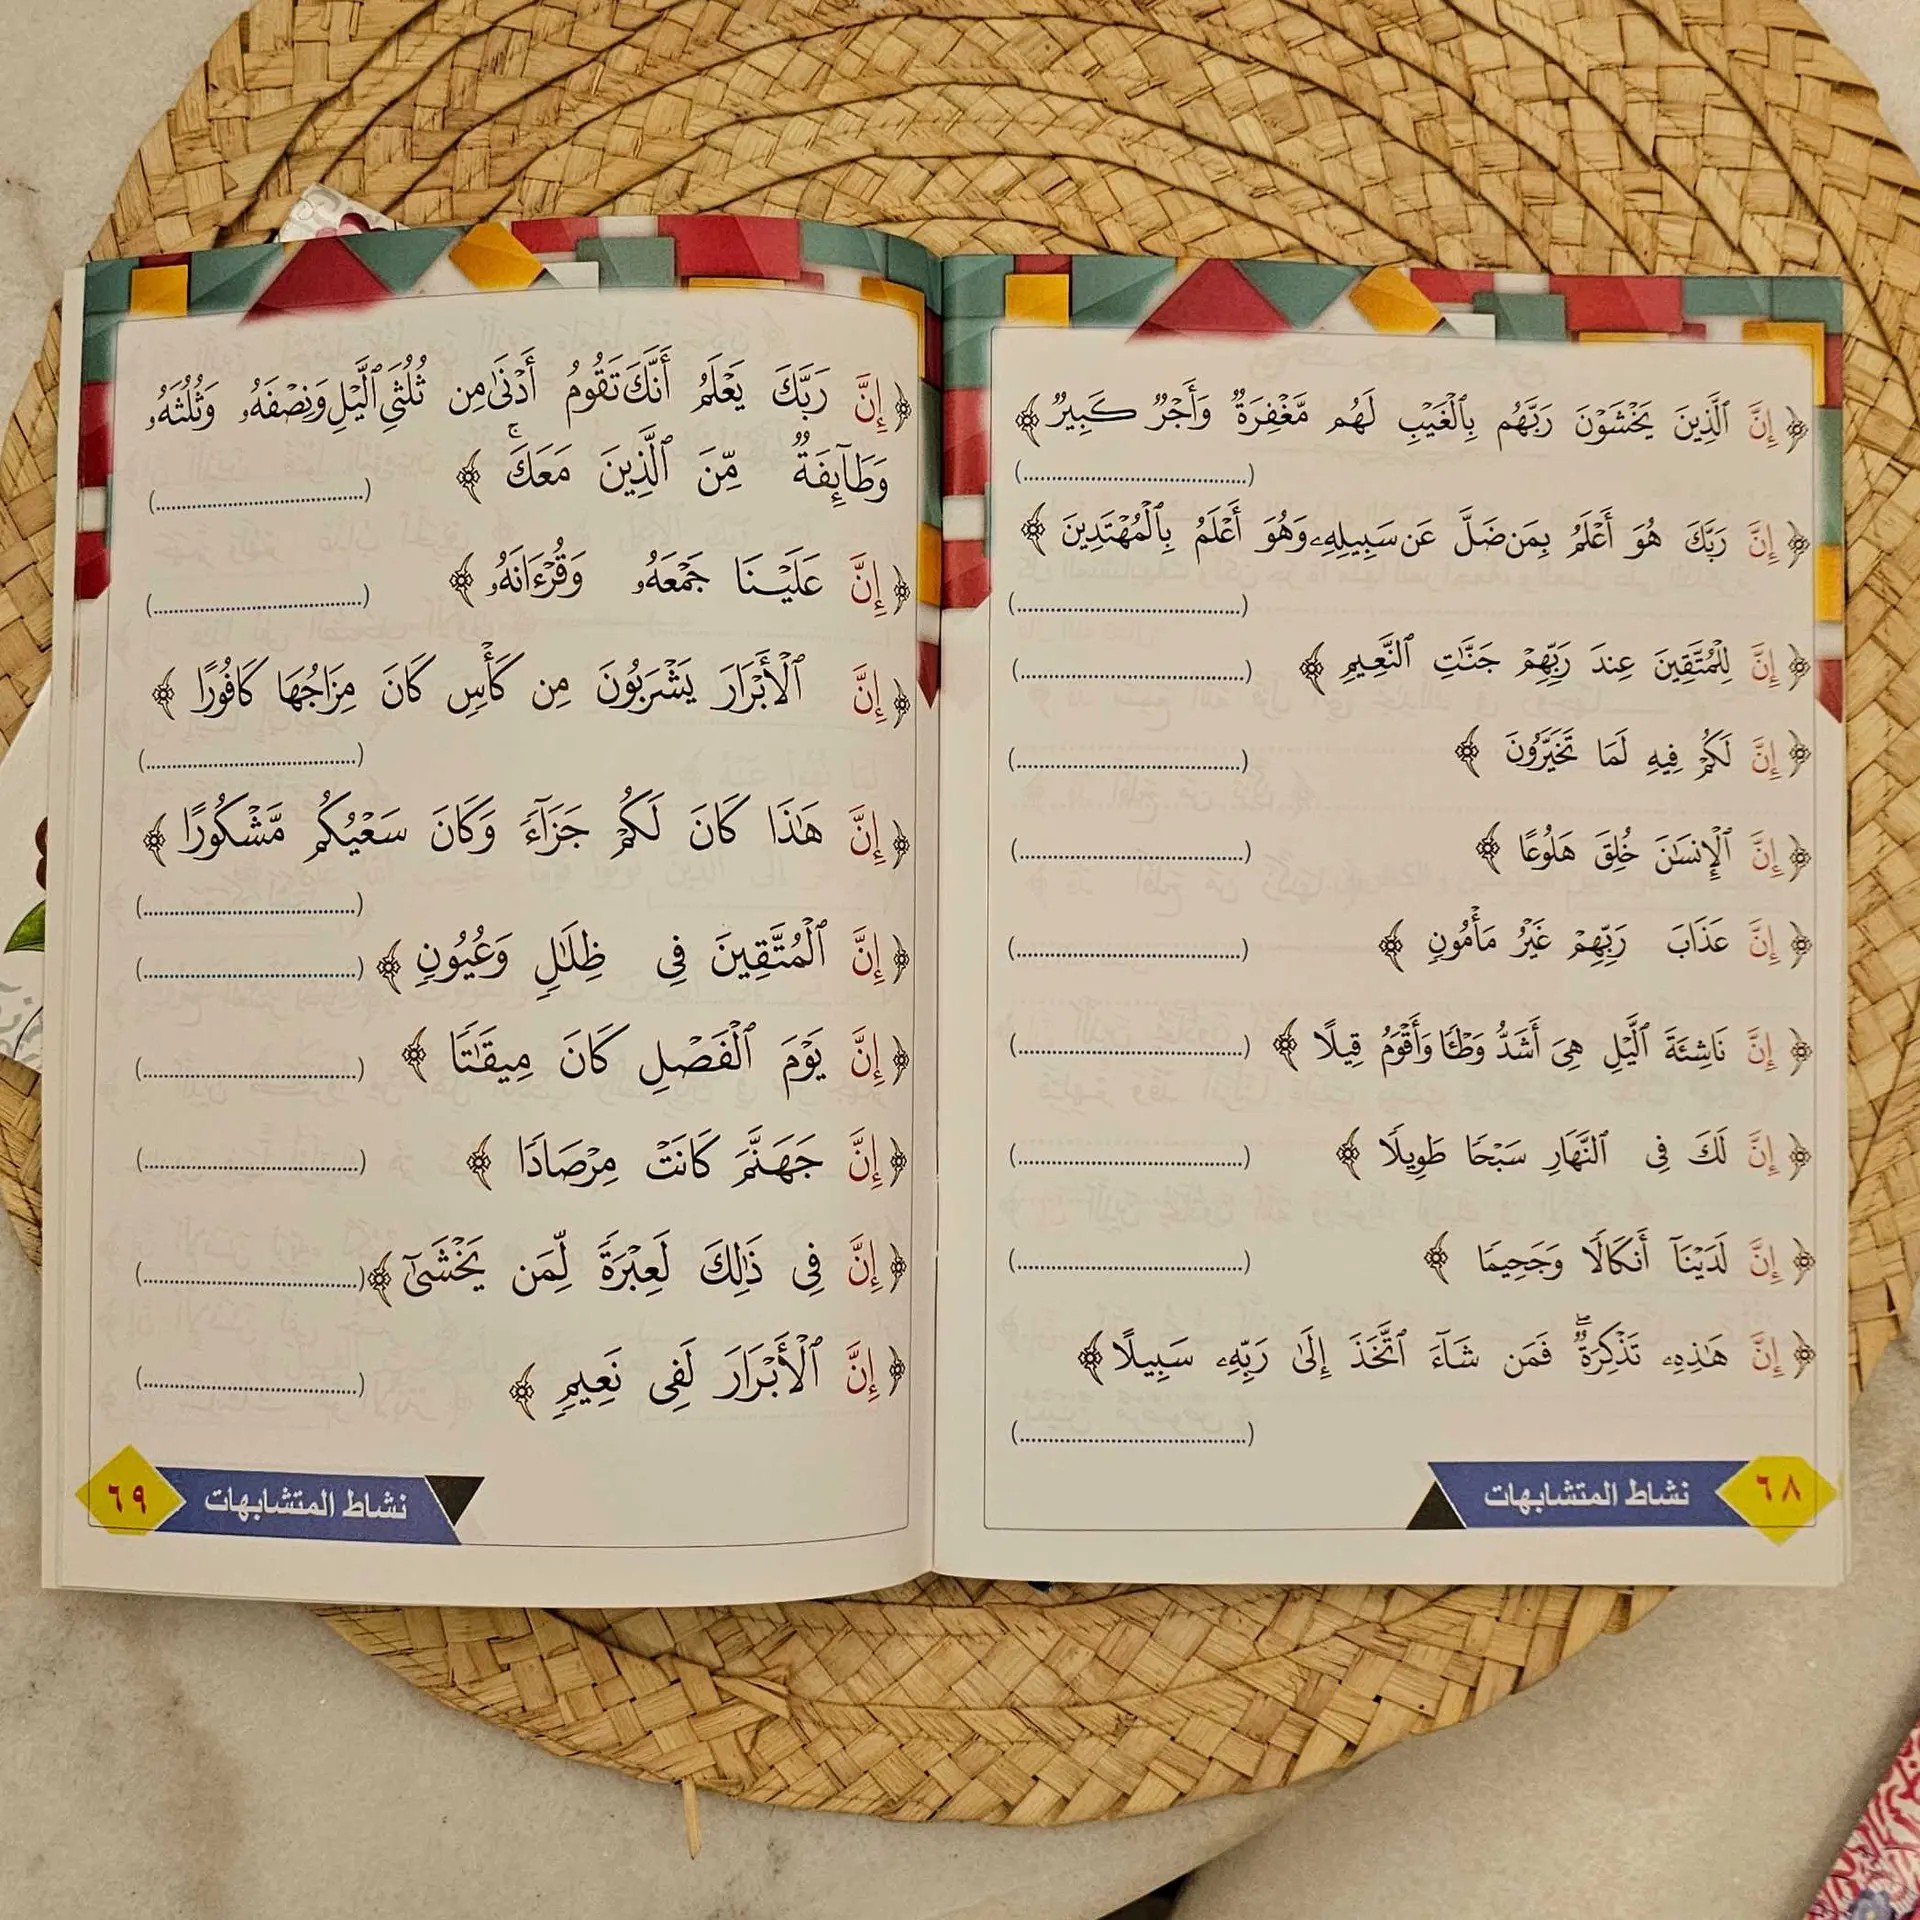 ﴿ إِنَّ ٱلَّذِينَ يَخۡشَوۡنَ رَبَّهُم بِٱلۡغَيۡبِ لَهُم مَّغۡفِرَةٞ وَأَجۡرٞ كَبِيرٞ ﴾
(........................................)
﴿ إِنَّ رَبَّكَ هُوَ أَعۡلَمُ بِمَن ضَلَّ عَن سَبِيلِهِۦ وَهُوَ أَعۡلَمُ بِٱلۡمُهۡتَدِينَ ﴾
(........................................)
﴿ إِنَّ لِلۡمُتَّقِينَ عِندَ رَبِّهِمۡ جَنَّٰتِ ٱلنَّعِيمِ ﴾ (........................................)
﴿ إِنَّ لَكُمۡ فِيهِ لَمَا تَخَيَّرُونَ ﴾ (........................................)
﴿ إِنَّ ٱلۡإِنسَٰنَ خُلِقَ هَلُوعًا ﴾ (........................................)
﴿ إِنَّ عَذَابَ رَبِّهِمۡ غَيۡرُ مَأۡمُونٖ ﴾ (........................................)
﴿ إِنَّ نَاشِئَةَ ٱلَّيۡلِ هِيَ أَشَدُّ وَطۡـٔٗا وَأَقۡوَمُ قِيلًا ﴾ (........................................)
﴿ إِنَّ لَكَ فِي ٱلنَّهَارِ سَبۡحٗا طَوِيلٗا ﴾ (........................................)
﴿ إِنَّ لَدَيۡنَآ أَنكَالٗا وَجَحِيمٗا ﴾ (........................................)
﴿ إِنَّ هَٰذِهِۦ تَذۡكِرَةٞۖ فَمَن شَآءَ ٱتَّخَذَ إِلَىٰ رَبِّهِۦ سَبِيلًا ﴾
(........................................)
نشاط المتشابهات ٦٨
﴿ إِنَّ رَبَّكَ يَعۡلَمُ أَنَّكَ تَقُومُ أَدۡنَىٰ مِن ثُلُثَيِ ٱلَّيۡلِ وَنِصۡفَهُۥ وَثُلُثَهُۥ
وَطَآئِفَةٞ مِّنَ ٱلَّذِينَ مَعَكَۚ ﴾ (........................................)
﴿ إِنَّ عَلَيۡنَا جَمۡعَهُۥ وَقُرۡءَانَهُۥ ﴾ (........................................)
﴿ إِنَّ ٱلۡأَبۡرَارَ يَشۡرَبُونَ مِن كَأۡسٖ كَانَ مِزَاجُهَا كَافُورًا ﴾
(........................................)
﴿ إِنَّ هَٰذَا كَانَ لَكُمۡ جَزَآءٗ وَكَانَ سَعۡيُكُم مَّشۡكُورًا ﴾
(........................................)
﴿ إِنَّ ٱلۡمُتَّقِينَ فِي ظِلَٰلٖ وَعُيُونٖ ﴾ (........................................)
﴿ إِنَّ يَوۡمَ ٱلۡفَصۡلِ كَانَ مِيقَٰتٗا ﴾ (........................................)
﴿ إِنَّ جَهَنَّمَ كَانَتۡ مِرۡصَادٗا ﴾ (........................................)
﴿ إِنَّ فِي ذَٰلِكَ لَعِبۡرَةٗ لِّمَن يَخۡشَىٰٓ ﴾ (........................................)
﴿ إِنَّ ٱلۡأَبۡرَارَ لَفِي نَعِيمٖ ﴾ (........................................)
نشاط المتشابهات ٦٩